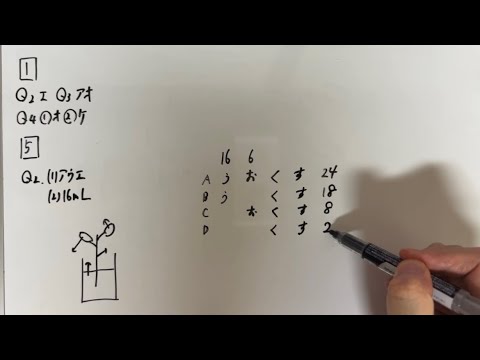 1
Q2 エ Q3 アオ
Q4 ①オ ②ケ
5
Q2. (1)アウエ
(2)16mL
16 6
A う お く す 24
B う く す 18
C お く す 8
D く す 2